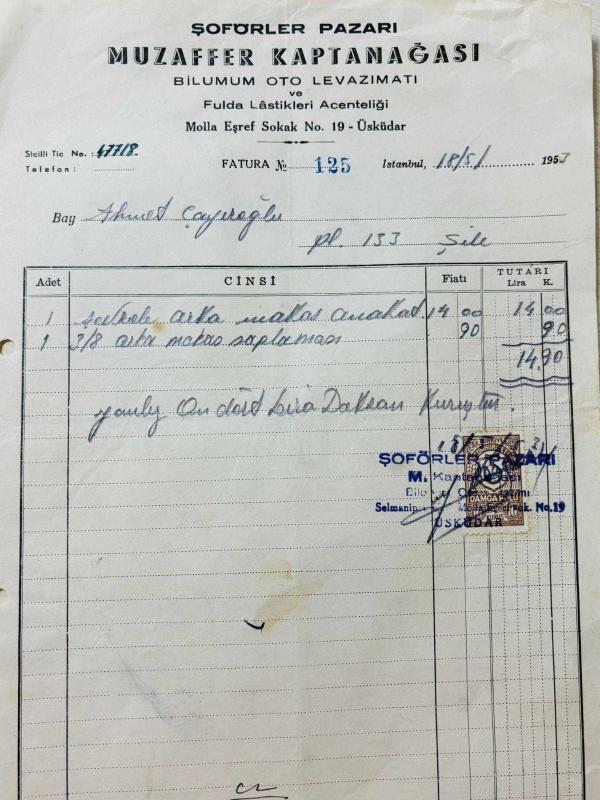 ŞOFÖRLER PAZARI
MUZAFFER KAPTANAĞASI
BİLUMUM OTO LEVAZIMATI
ve
Fulda Lâstikleri Acenteliği
Molla Eşref Sokak No. 19 - Üsküdar
Sicilli Tic No. : 47718.
Telefon :
FATURA № 125
Istanbul, 18/5/ 1953
Bay Ahmet Çayıroğlu
pl. 133 Şile
Adet CİNSİ Fiatı TUTARI
Lira K.
1 arka makas anakat. 14 00 14 00
1 3/8 arka makas saplaması 90 90
14.90
yanlız On dört Lira Doksan Kuruştur.
ŞOFÖRLER PAZARI
M.
DAMGA
Selmanip No.19
ÜSKÜDAR